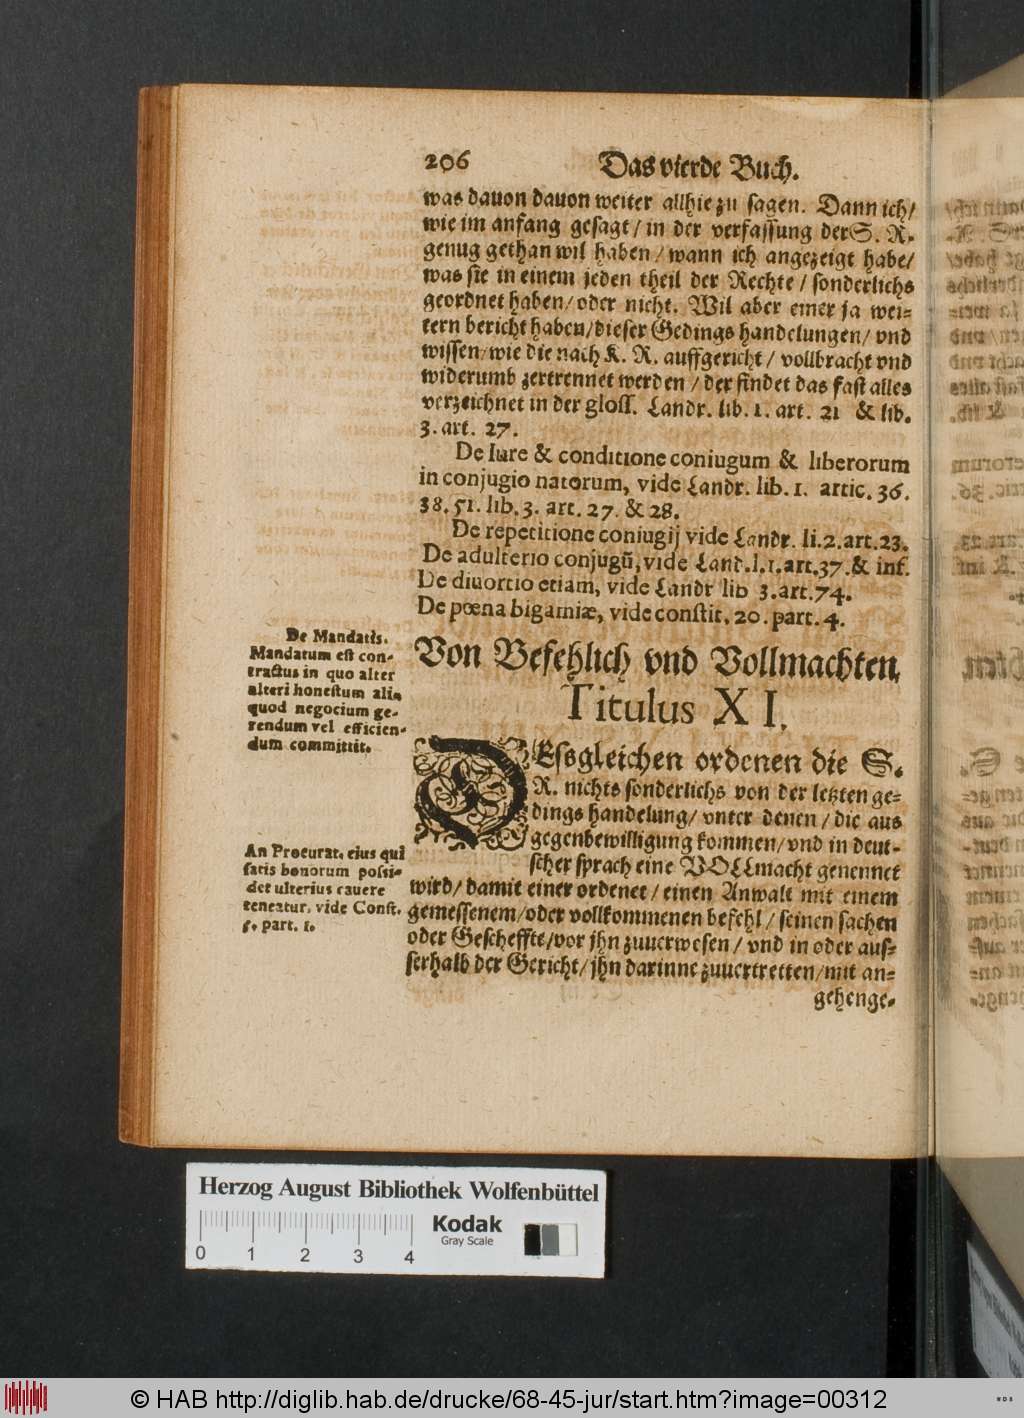 206 Das vierde Buch.
was dauon dauon weiter allhie zu sagen. Dann ich/
wie im anfang gesagt / in der verfassung der S. R.
genug gethan wil haben / wann ich angezeigt habe/
was sie in einem jeden theil der Rechte / sonderlichs
geordnet haben/ oder nicht. Wil aber einer ja wei-
tern bericht haben/dieser Gedings handelungen/ vnd
wissen/wie die nach K. R. auffgericht / vollbracht vnd
widerumb zertrennet werden / der findet das fast alles
verzeichnet in der gloss. Landr. lib. 1. art. 21 & lib.
3. art. 27.
De Iure & conditione coniugum & liberorum
in conjugio natorum, vide Landr. lib. 1. artic. 36.
38. 51. lib. 3. art. 27. & 28.
De repetitione coniugij vide Landr. li.2.art.23.
De adulterio conjugũ, vide Land.l.1.art.37.& inf.
De diuortio etiam, vide Landr lib 3.art.74.
De pœna bigamiæ, vide constit. 20. part. 4.
De Mandatis.
Mandatum est con-
tractus in quo alter
alteri honestum ali-
quod negocium ge-
rendum vel efficien-
dum committit.
Von Befehlich vnd Vollmachten,
Titulus XI.
DEssgleichen ordenen die S.
R. nichts sonderlichs von der letzten ge-
dings handelung/ vnter denen / die aus
gegenbewilligung kommen/ vnd in deut-
scher sprach eine VOLLmacht genennet
wird/ damit einer ordenet / einen Anwalt mit einem
gemessenem/ oder vollkommenen befehl / seinen sachen
oder Gescheffte/vor jhn zuuerwesen / vnd in oder aus-
serhalb der Gericht/ jhn darinne zuuertretten/mit an-
gehenge.
An Procurat. eius qui
satis bonorum possi-
det ulterius cauere
teneatur, vide Const.
5. part. 1.
Herzog August Bibliothek Wolfenbüttel
0 1 2 3 4
Kodak
Gray Scale
© HAB http://diglib.hab.de/drucke/68-45-jur/start.htm?image=00312